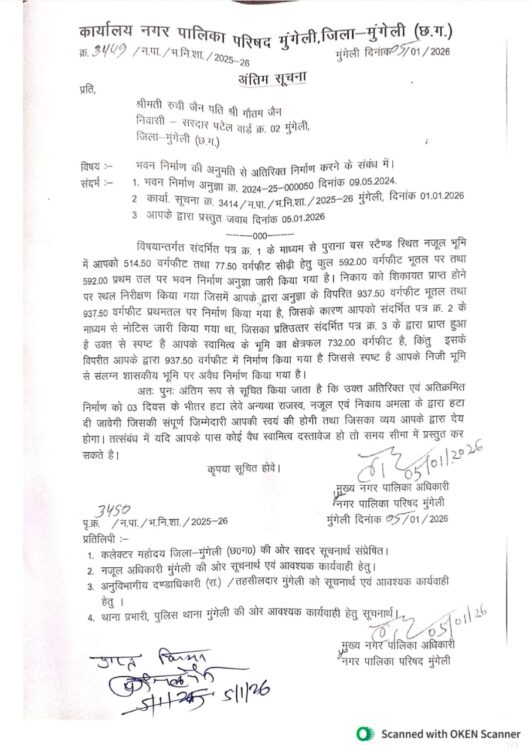 कार्यालय नगर पालिका परिषद मुंगेली,जिला–मुंगेली (छ.ग.)
क्र. 3449 /न.पा./भ.नि.शा./2025-26 मुंगेली दिनांक 05/01/2026
अंतिम सूचना
प्रति,
श्रीमती रुची जैन पति श्री गौतम जैन
निवासी – सरदार पटेल वार्ड क्र. 02 मुंगेली,
जिला–मुंगेली (छ.ग.)
विषय :– भवन निर्माण की अनुमति से अतिरिक्त निर्माण करने के संबंध में।
संदर्भ :– 1. भवन निर्माण अनुज्ञा क्र. 2024-25-000050 दिनांक 09.05.2024.
2 कार्या. सूचना क्र. 3414/न.पा./भ.नि.शा./2025-26 मुंगेली, दिनांक 01.01.2026
3 आपके द्वारा प्रस्तुत जवाब दिनांक 05.01.2026
——000——
विषयान्तर्गत संदर्भित पत्र क्र. 1 के माध्यम से पुराना बस स्टैण्ड स्थित नजूल भूमि
में आपको 514.50 वर्गफीट तथा 77.50 वर्गफीट सीढ़ी हेतु कुल 592.00 वर्गफीट भूतल पर तथा
592.00 प्रथम तल पर भवन निर्माण अनुज्ञा जारी किया गया है। निकाय को शिकायत प्राप्त होने
पर स्थल निरीक्षण किया गया जिसमें आपके द्वारा अनुज्ञा के विपरित 937.50 वर्गफीट भूतल तथा
937.50 वर्गफीट प्रथमतल पर निर्माण किया गया है, जिसके कारण आपको संदर्भित पत्र क्र. 2 के
माध्यम से नोटिस जारी किया गया था, जिसका प्रतिउत्तर संदर्भित पत्र क्र. 3 के द्वारा प्राप्त हुआ
है उक्त से स्पष्ट है आपके स्वामित्व के भूमि का क्षेत्रफल 732.00 वर्गफीट है, किंतु इसके
विपरीत आपके द्वारा 937.50 वर्गफीट में निर्माण किया गया है जिससे स्पष्ट है आपके निजी भूमि
से संलग्न शासकीय भूमि पर अवैध निर्माण किया गया है।
अतः पुनः अंतिम रूप से सूचित किया जाता है कि उक्त अतिरिक्त एवं अतिक्रमित
निर्माण को 03 दिवस के भीतर हटा लेवे अन्यथा राजस्व, नजूल एवं निकाय अमला के द्वारा हटा
दी जावेगी जिसकी संपूर्ण जिम्मेदारी आपकी स्वयं की होगी तथा जिसका व्यय आपके द्वारा देय
होगा। तत्संबंध में यदि आपके पास कोई वैध स्वामित्व दस्तावेज हो तो समय सीमा में प्रस्तुत कर
सकते है।
कृपया सूचित होवे।
05/01/2026
मुख्य नगर पालिका अधिकारी
नगर पालिका परिषद मुंगेली
3450
पृ.क्र. /न.पा./भ.नि.शा./2025-26 मुंगेली दिनांक 05/01/2026
प्रतिलिपी :–
1. कलेक्टर महोदय जिला–मुंगेली (छ0ग0) की ओर सादर सूचनार्थ संप्रेषित।
2. नजूल अधिकारी मुंगेली की ओर सूचनार्थ एवं आवश्यक कार्यवाही हेतु।
3. अनुविभागीय दण्डाधिकारी (रा.) /तहसीलदार मुंगेली को सूचनार्थ एवं आवश्यक कार्यवाही
हेतु ।
4. थाना प्रभारी, पुलिस थाना मुंगेली की ओर आवश्यक कार्यवाही हेतु सूचनार्थ।
05/01/26
मुख्य नगर पालिका अधिकारी
नगर पालिका परिषद मुंगेली
प्राप्त किया
5/1/26 5/1/26
Scanned with OKEN Scanner